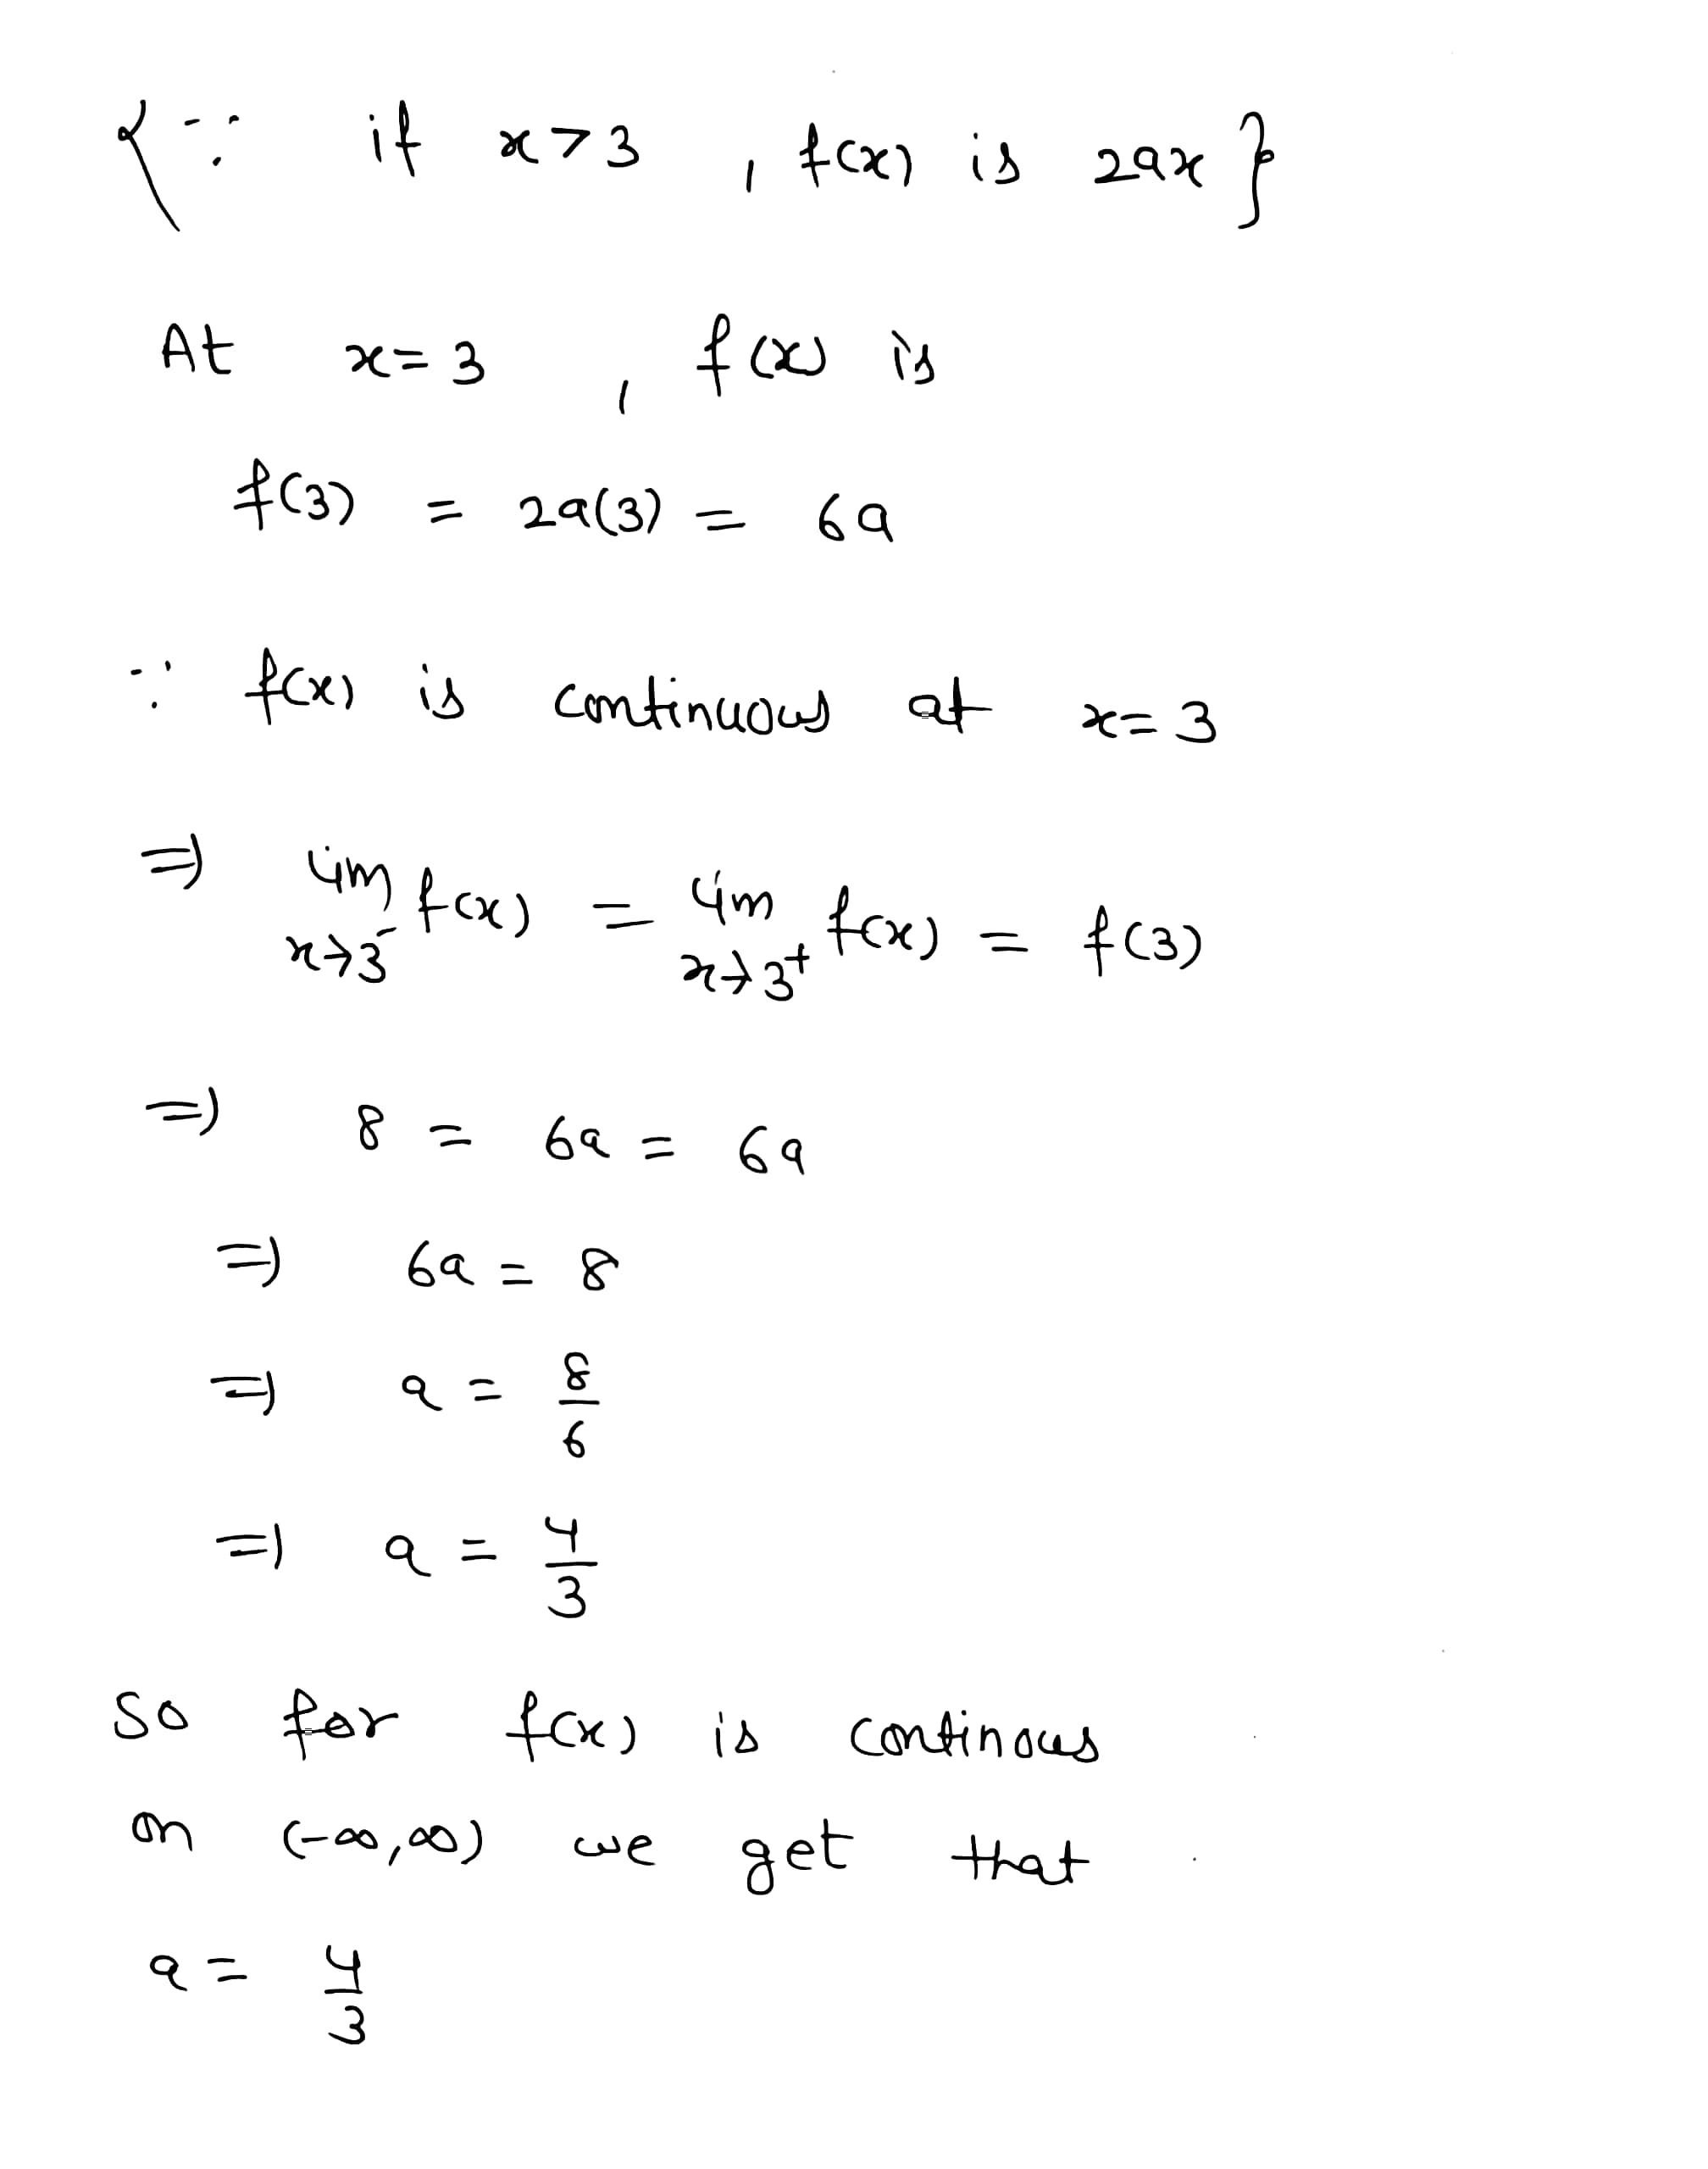 {∵ if x>3 , f(x) is 2ax}
At x=3 , f(x) is
f(3) = 2a(3) = 6a
∵ f(x) is continuous at x=3
⇒ lim x→3⁻ f(x) = lim x→3⁺ f(x) = f(3)
⇒ 8 = 6a = 6a
⇒ 6a = 8
⇒ a = 8/6
⇒ a = 4/3
So for f(x) is continous
on (-∞,∞) we get that
a = 4/3